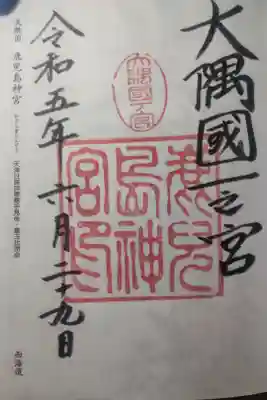 大隅國一之宮
大隅國一宮
鹿兒
島神
宮印
令和五年六月二十九日
大隅国 鹿児島神宮
西海道